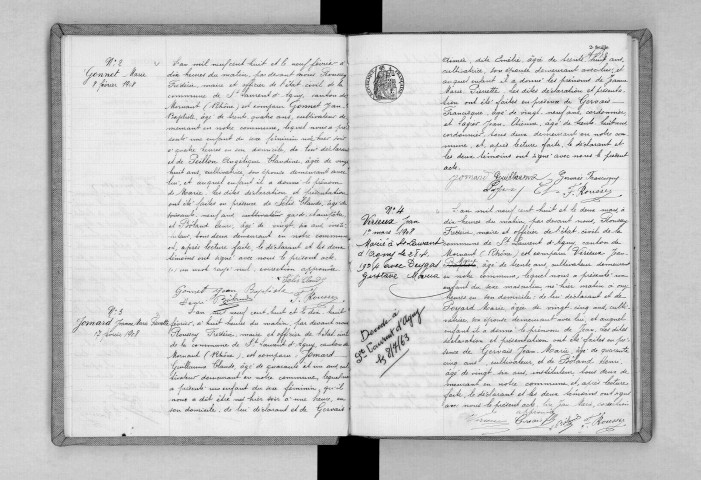 N° 2
Gonnet Marie
9 février 1908
L'an mil neuf cent huit et le neuf février à
dix heures du matin, par devant nous Roussey
Frédéric, maire et officier de l'état civil de la
commune de St Laurent d'Agny, canton de
Mornant (Rhône), est comparu Gonnet Jean
Baptiste, âgé de trente quatre ans, cultivateur de
meurant en notre commune, lequel nous a pré
senté une enfant du sexe féminin née hier soir
à quatre heures en son domicile, de lui déclarant
et de Peillon Angélique Claudine, âgée de vingt
huit ans, cultivatrice, son épouse demeurant avec
lui, et auquel enfant il a donné le prénom
de Marie. Les dites déclaration et présentation
ont été faites en présence de Claude, âgé de
soixante neuf ans cultivateur
et Bolland âgé de vingt six ans insti-
tuteur, tous deux demeurant en notre commune,
et, après lecture faite, le déclarant et les deux
témoins ont signé avec nous le présent acte.
un mot rayé nul, correction approuvée
Gonnet Jean Baptiste
F. Roussey
N° 3
Jomard Jeanne Marie Pierrette
17 février 1908
L'an mil neuf cent huit et le dix huit
février, à huit heures du matin, par devant nous
Roussey Frédéric, maire et officier de l'état civil
de la commune de St Laurent d'Agny, canton de
Mornant (Rhône), est comparu Jomard
Guillaume Claude, âgé de quarante et un ans cul
tivateur demeurant en notre commune, lequel nous
a présenté une enfant du sexe féminin, qu'il
nous a dit être née hier soir à une heure, en
son domicile, de lui déclarant et de Gervais
Aimée, dite Emélie, âgée de trente huit ans,
cultivatrice, son épouse demeurant avec lui, et
auquel enfant il a donné les prénoms de Jeanne
Marie Pierrette. Les dites déclaration et présenta-
tion ont été faites en présence de Gervais
Françisque, âgé de vingt neuf ans, cordonnier,
et Jean Etienne, âgé de trente huit ans
cordonnier, tous deux demeurant en notre com
mune, et, après lecture faite, le déclarant et
les deux témoins ont signé avec nous le présent
acte.
Jomard Guillaume Gervais
F. Roussey
N° 4
Virieux Jean
1er mars 1908
Marié à St Laurent
d'Agny le
avec
Marie
Décédé à
St Laurent d'Agny
le 8/4/63
L'an mil neuf cent huit et le deux mars à
dix heures du matin, par devant nous, Roussey
Frédéric, maire et officier de l'état civil de la
commune de St Laurent d'Agny canton de
Mornant (Rhône), est comparu Virieux Jean
âgé de trente ans, cultivateur demeurant
en notre commune, lequel nous a présenté un
enfant du sexe masculin né hier matin à
heures en son domicile, de lui déclarant et de
Marie, âgée de vingt cinq ans cultiva-
trice, son épouse demeurant avec lui, et auquel
enfant il a donné le prénom de Jean. Les dites
déclaration et présentation ont été faites en pré-
sence de Gervais Jean Marie, âgé de quarante
cinq ans, cultivateur, et de Bolland
âgé de vingt six ans, instituteur, tous deux de-
meurant en notre commune et, après lecture
faite, le déclarant et les deux témoins ont signé
avec nous le présent acte.
F. Roussey